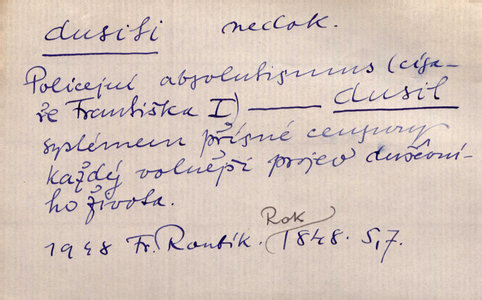 dusiti nedok.
Policejní absolutismus (císa-
ře Františka I) —— dusil
systémem přísné censury
každý volnější projev duševní-
ho života.
Rok
1948 Fr. Roubík. 1848. S, 7.